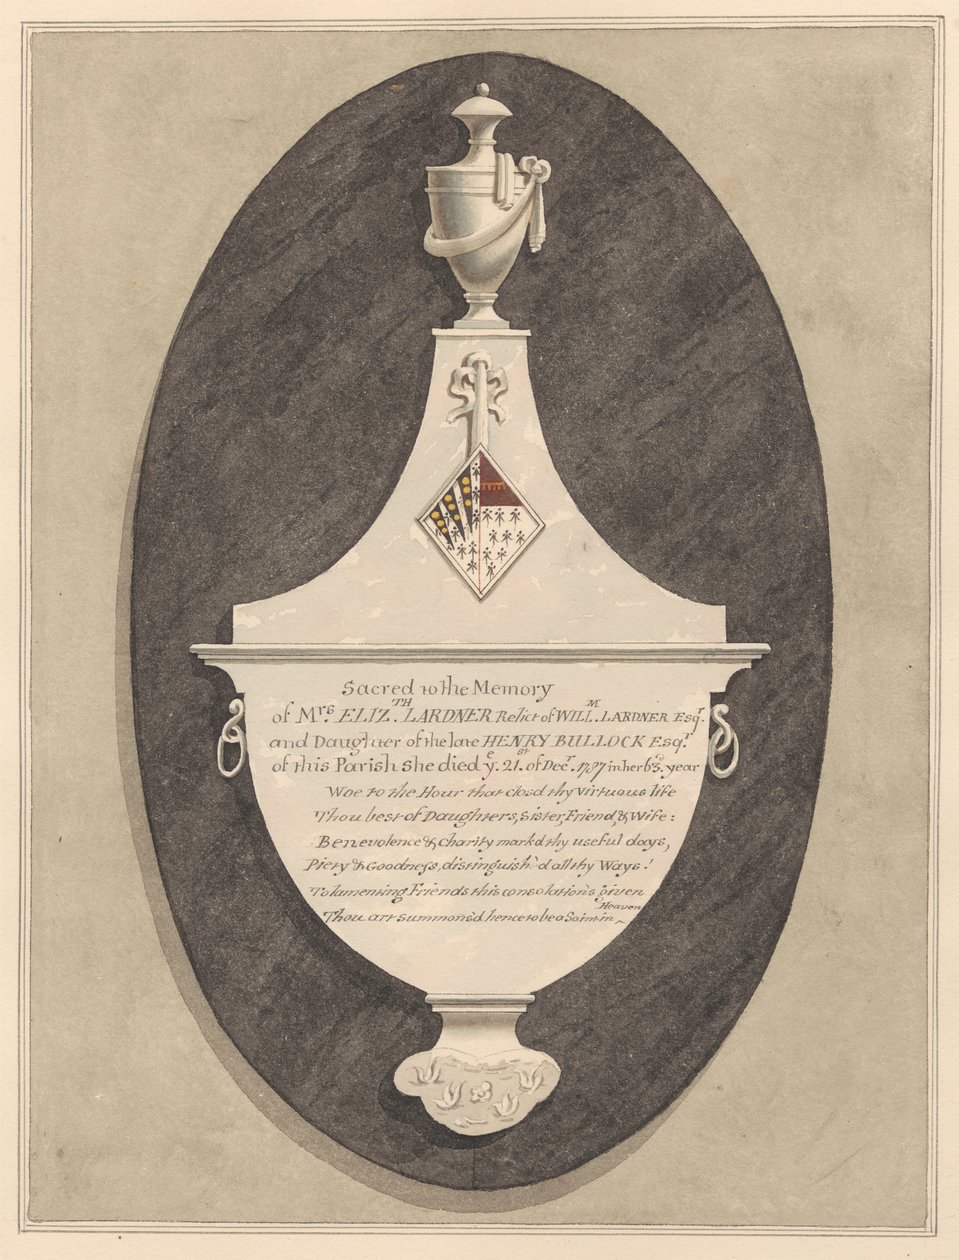 Sacred to the Memory
of Mrs. ELIZ.TH LARDNER, Relict of WILL.M LARDNER Esqr.
and Daughter of the late HENRY BULLOCK Esqr.
of this Parish She died ye. 21.st of Decr. 1787 in her 63.d year
Woe to the Hour that clos'd thy virtuous life
Thou best of Daughters, Sister, Friend, & Wife:
Benevolence & Charity mark'd thy useful days,
Piety & Goodness, distinguish'd all thy Ways.!
To lamenting Friends this consolation's given
Thou art summons'd hence to be a Saint in ^ Heaven